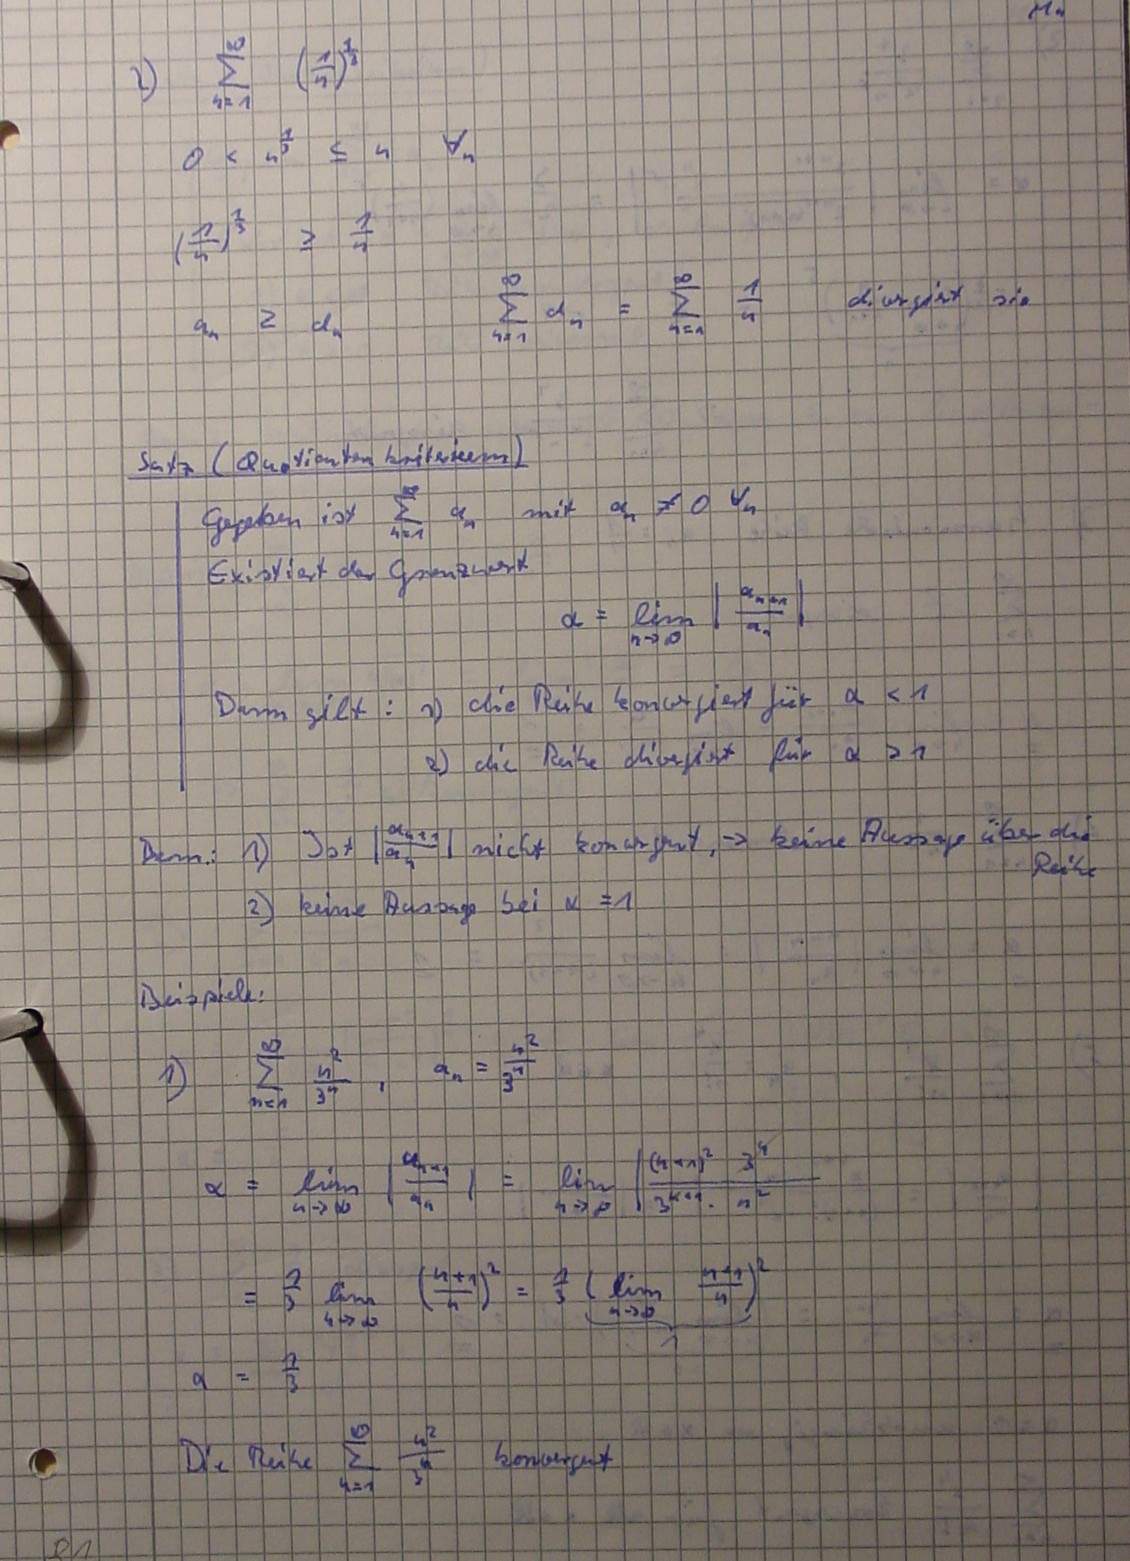 2) ∑_{n=1}^{∞} (1/n)^{1/3}
0 < n^{1/3} ≤ n ∀n
(1/n)^{1/3} ≥ 1/n
a_n ≥ d_n ∑_{n=1}^{∞} d_n = ∑_{n=1}^{∞} 1/n divergiert
Satz (Quotientenkriterium)
Gegeben ist ∑_{n=1}^{∞} a_n mit a_n ≠ 0 ∀n
Existiert der Grenzwert
α = lim_{n→∞} |a_{n+1}/a_n|
Dann gilt: 1) die Reihe konvergiert für α < 1
2) die Reihe divergiert für α > 1
Bem.: 1) Ist |a_{n+1}/a_n| nicht konvergent, → keine Aussage über die
Reihe
2) keine Aussage bei α = 1
Beispiele:
1) ∑_{n=1}^{∞} n²/3^n , a_n = n²/3^n
α = lim_{n→∞} |a_{n+1}/a_n| = lim_{n→∞} |(n+1)² 3^n / 3^{n+1} · n²
= 1/3 lim_{n→∞} ((n+1)/n)² = 1/3 (lim_{n→∞} (n+1)/n)²
1
α = 1/3
Die Reihe ∑_{n=1}^{∞} n²/3^n konvergent